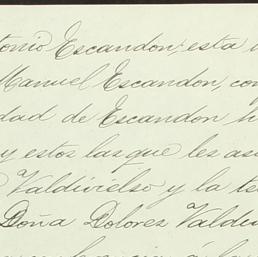 tonio Escandon: esta
Manuel Escandon, con
dad de Escandon h
y estos las que les as
Valdivielso y la te
Doña Dolores Valdi